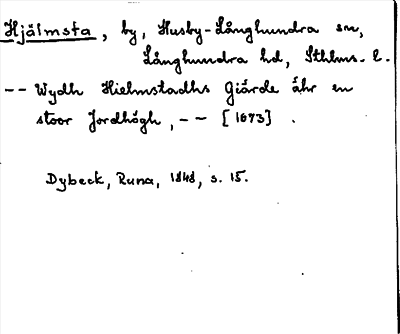 Hjälmsta, by, Husby-Långhundra sn,
Långhundra hd, Sthlms. l.
-- Wydh Hielmstadhs Giärde åhr en
stoor Jordhögh, -- [1673].
Dybeck, Runa, 1848, s. 15.